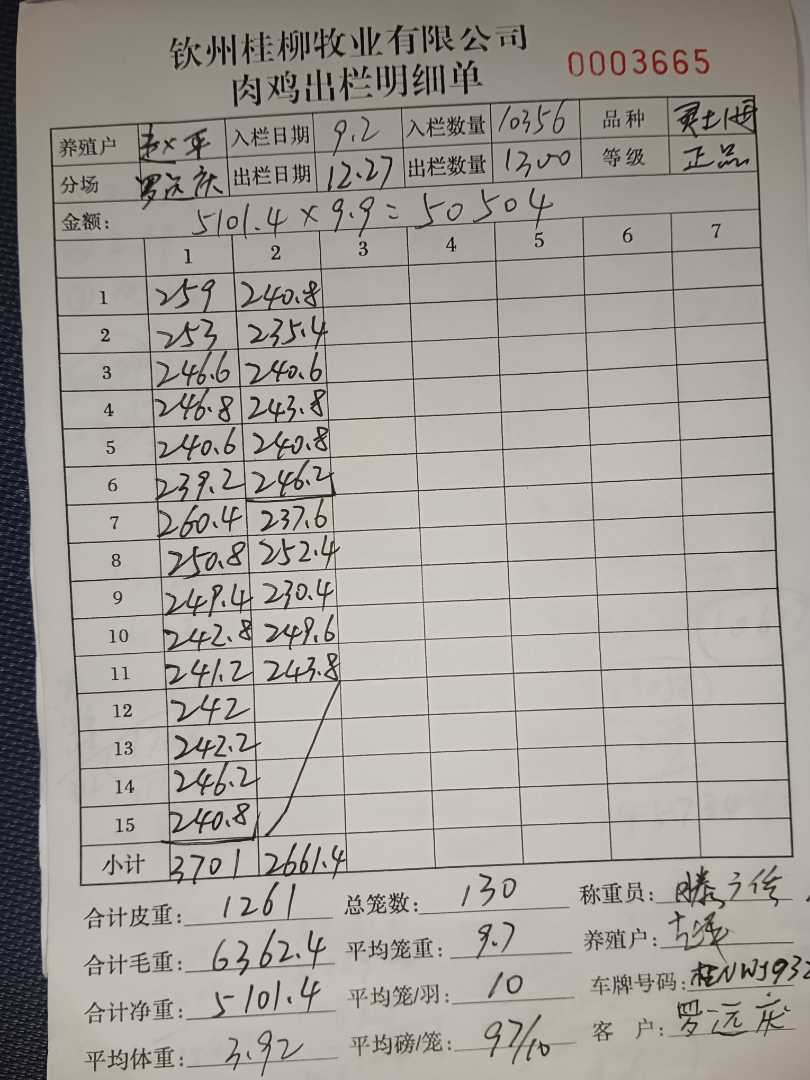 钦州桂柳牧业有限公司
肉鸡出栏明细单 0003665
养殖户 入栏日期 9.2 入栏数量 10356 品种
分场 罗远庆 出栏日期 12.27 出栏数量 1300 等级 正品
金额: 5101.4 × 9.9 = 50504
1 2 3 4 5 6 7
1 259 240.8
2 253 235.4
3 246.6 240.6
4 246.8 243.8
5 240.6 240.8
6 239.2 246.2
7 260.4 237.6
8 250.8 252.4
9 249.4 230.4
10 242.8 249.6
11 241.2 243.8
12 242
13 242.2
14 246.2
15 240.8
小计 3701 2661.4
合计皮重: 1261 总笼数: 130 称重员:
合计毛重: 6362.4 平均笼重: 9.7 养殖户:
合计净重: 5101.4 平均笼/羽: 10 车牌号码:
平均体重: 3.92 平均磅/笼: 97/10 客户: 罗远庆